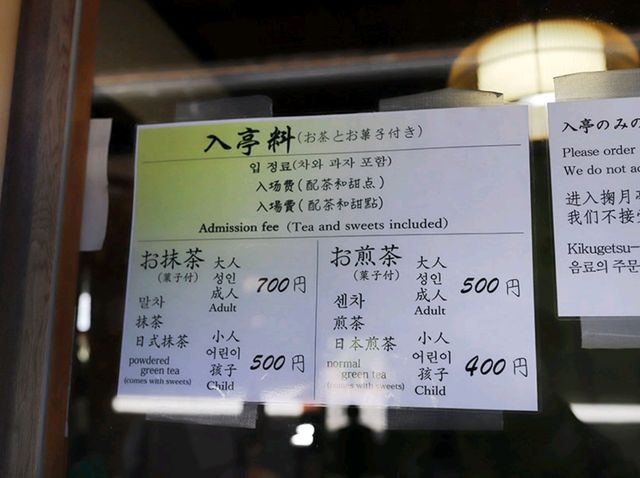 入亭料(お茶とお菓子付き)
입 정료(차와 과자 포함)
入场费(配茶和甜点)
入場費(配茶和甜點)
Admission fee (Tea and sweets included)
お抹茶
(菓子付)
말차
抹茶
日式抹茶
powdered
green tea
(comes with sweets)
大人
성인
成人
Adult
700円
小人
어린이
孩子
Child
500円
お煎茶
(菓子付)
센차
煎茶
日本煎茶
normal
green tea
(comes with sweets)
大人
성인
成人
Adult
500円
小人
어린이
孩子
Child
400円
入亭のみの
Please order
We do not ac
进入掬月亭
我们不接受
Kikugetsu-
음료의 주문